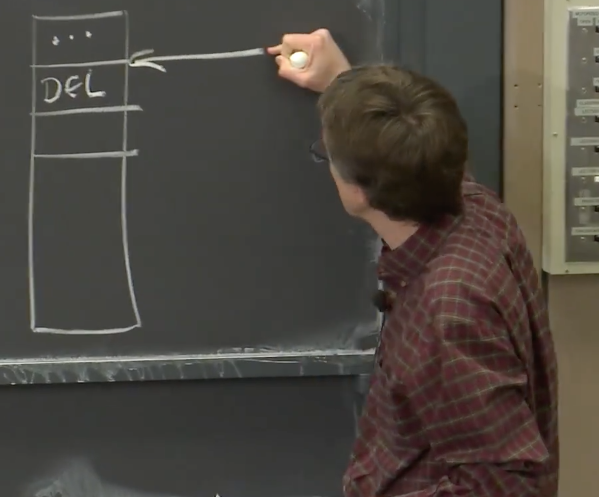 ...
DEL